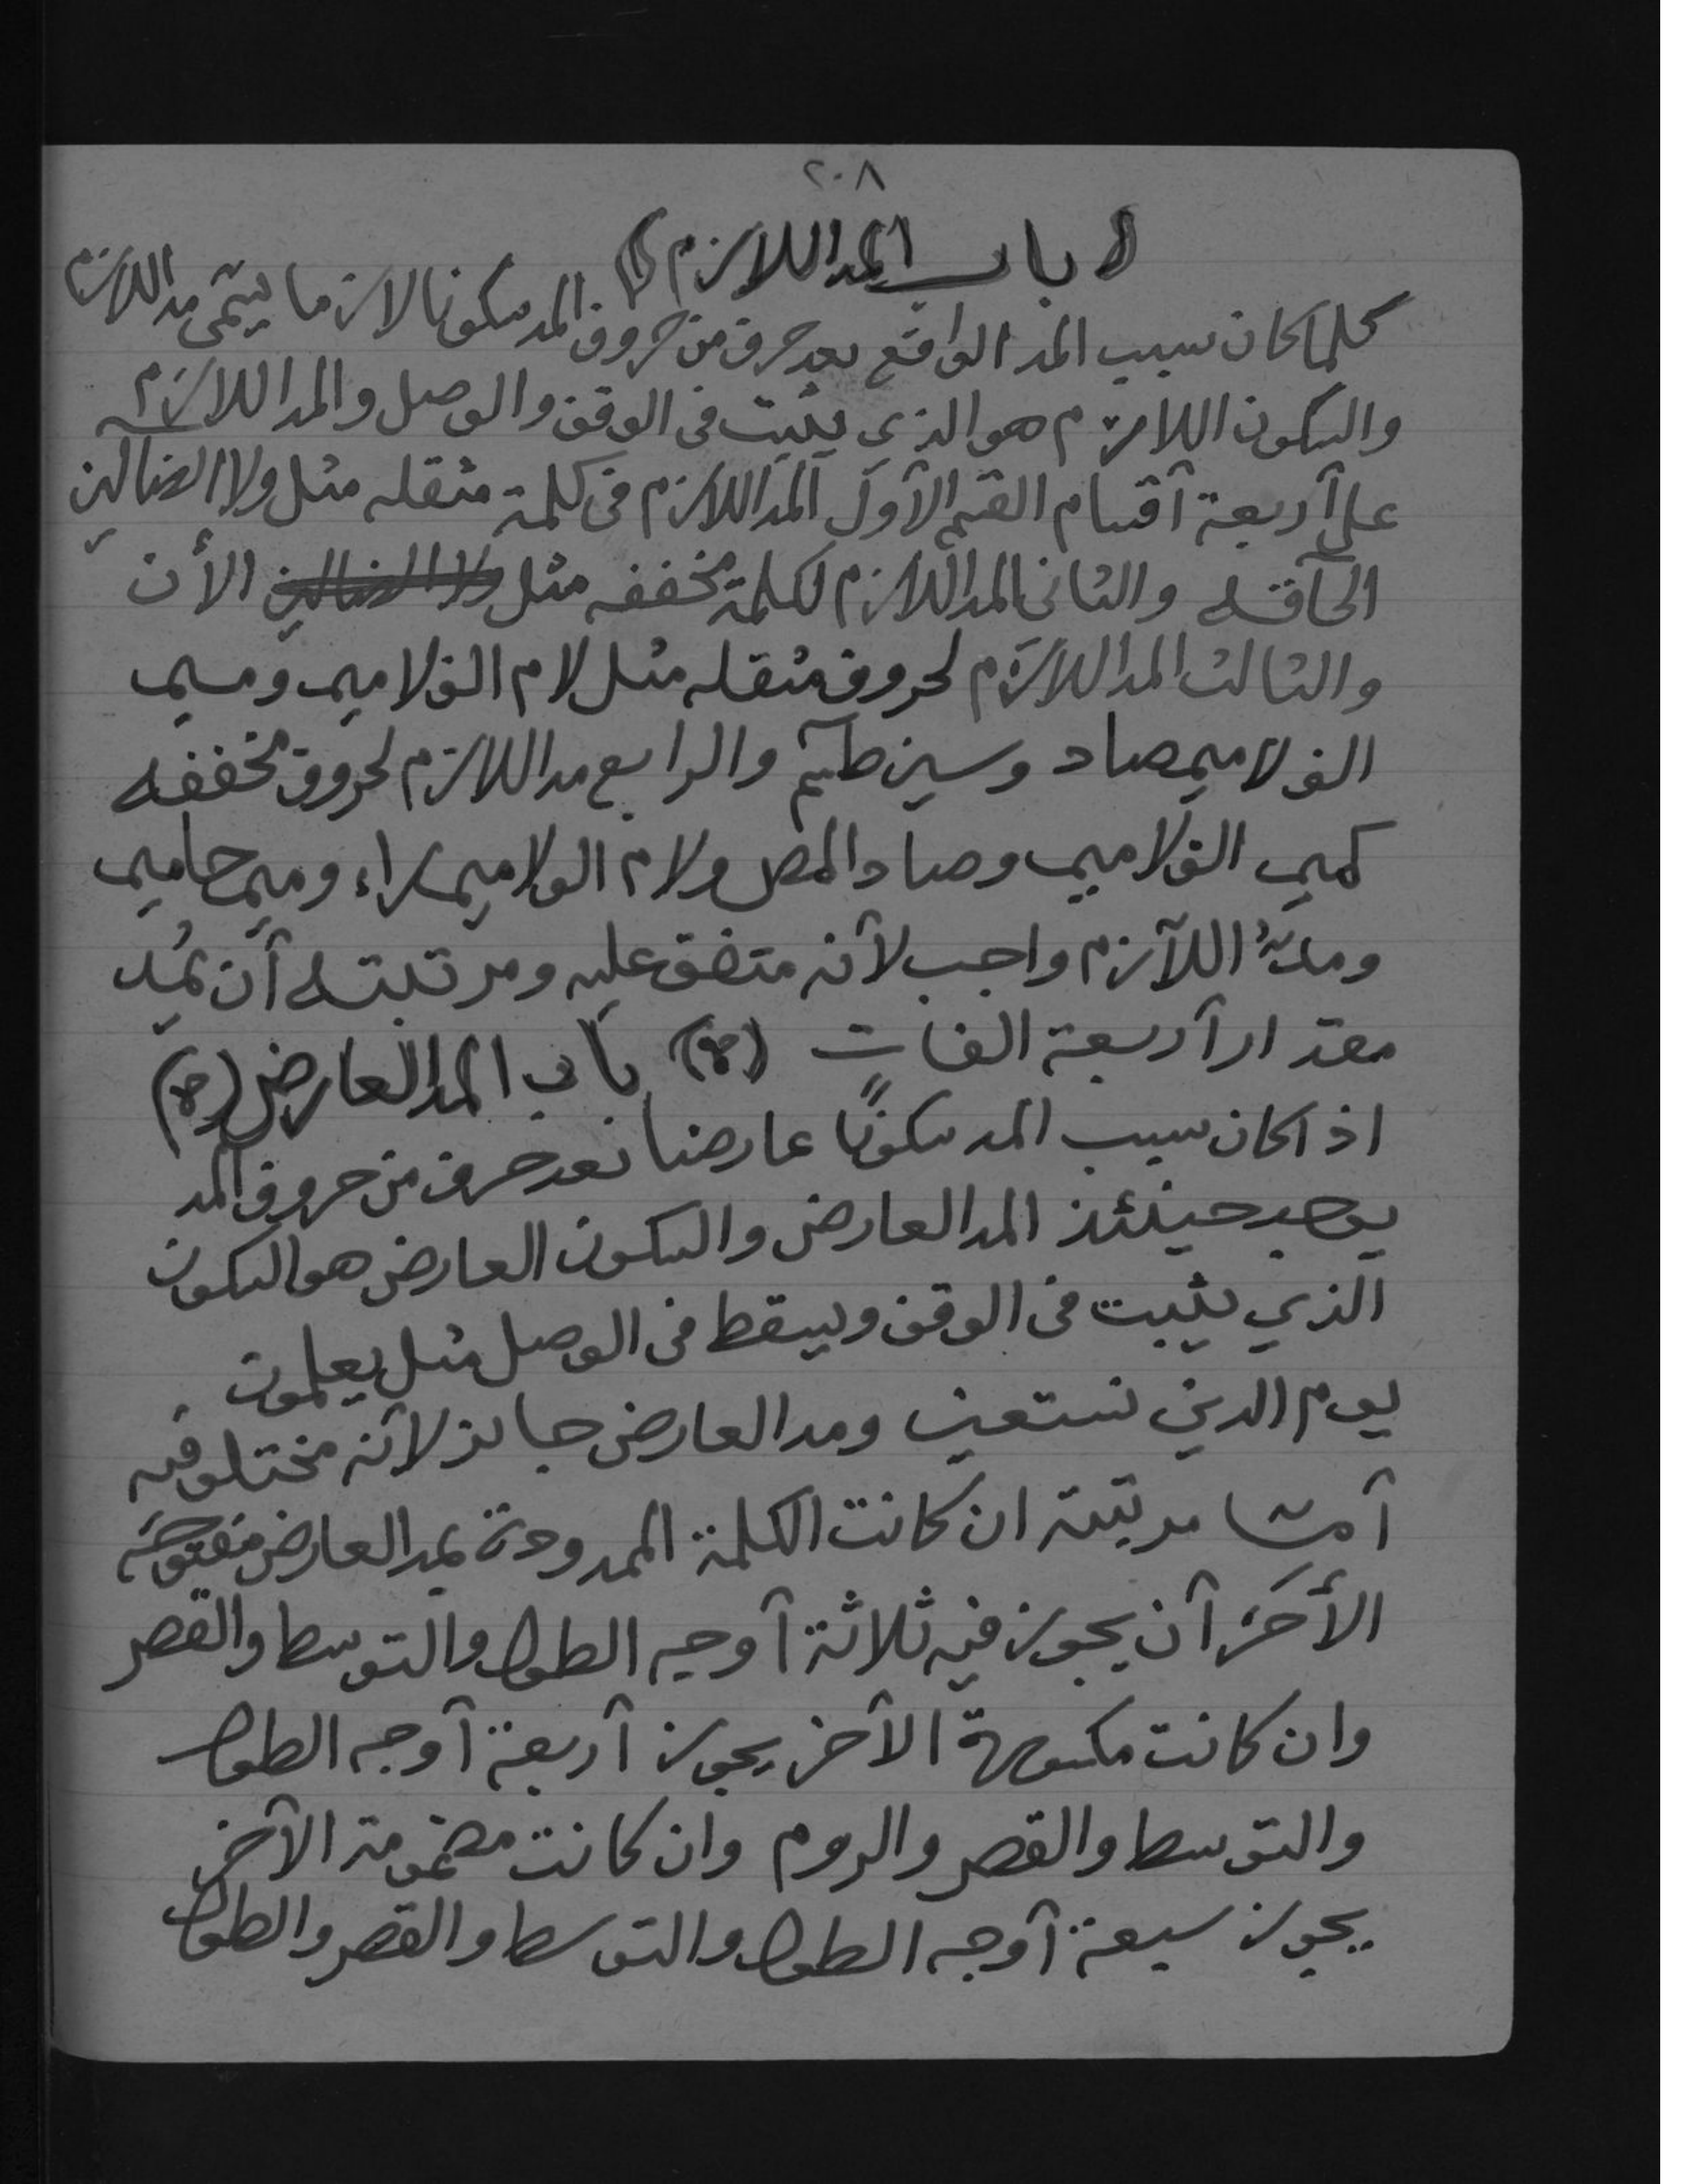 ٢٠٨
( باب المد اللازم )
كلما كان سبب المد الواقع بعد حرف من حروف المد سكونا لازما يسمى مد اللازم
والسكون اللازم هو الذي يثبت فى الوقف والوصل والمد اللازم
على أربعة أقسام القسم الأول المد اللازم فى كلمة مثقله مثل ولا الضالين
الحآقه والثانى المد اللازم لكلمة مخففه مثل ولا الضالين الأن
والثالث المد اللازم لحروف مثقله مثل لام الف لا ميم وميم
الف لا ميم صاد وسين طسم والرابع مد اللازم لحروف مخففه
كميم الف لا ميم وصاد المص ولام الف لا ميم راء وميم حا ميم
ومدّ اللآزم واجب لأنه متفق عليه ومرتبته أن يُمد
مقدار أربعة الفات (ه) باب المد العارض (ه)
اذا كان سبب المد سكونًا عارضا بعد حرف من حروف المد
يوجد حينئذ المد العارض والسكون العارض هو السكون
الذي يثبت فى الوقف ويسقط فى الوصل مثل يعلمون
يوم الدين نستعين ومد العارض جايز لأنه مختلف فيه
أمّا مرتبته ان كانت الكلمة الممدودة بمد العارض مفتوحة
الأخر أن يجوز فيه ثلاثة أوجه الطول والتوسط والقصر
وان كانت مكسورة الأخر يجوز أربعة أوجه الطول
والتوسط والقصر والروم وان كانت مضمومة الأخر
يجوز سبعة أوجه الطول والتوسط والقصر والطول